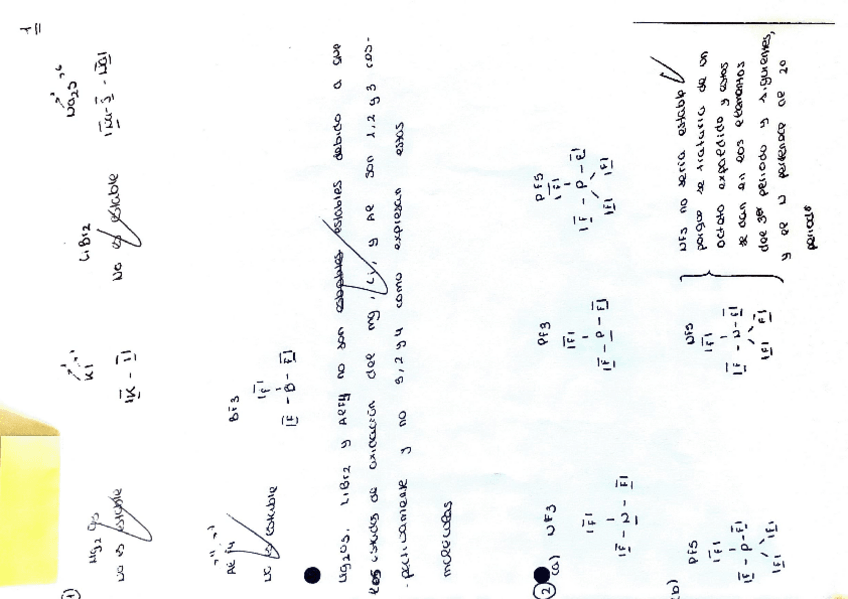 1
1)
Mg2O3
No es estable
KI
|K - I|
LiBr2
No es estable
Na2S
|Na - S - Na|
AlF4
No es estable
BF3
|F|
|F - B - F|
Mg2O3, LiBr2 y AlF4 no son estables debido a que
los estados de oxidación del Mg, Li, y Al son 1, 2 y 3 res-
pectivamente y no 3, 2 y 4 como expresan estas
moléculas
2
(a) NF3
|F|
|F - N - F|
PF3
|F|
|F - P - F|
PF5
|F|
|F - P - F|
|F| |F|
b)
PF5
|F|
|F - P - F|
|F| |F|
NF5
|F|
|F - N - F|
|F| |F|
NF5 no sería estable
porque se trataría de un
octeto expandido y estos
se dan en los elementos
del 3er periodo y siguientes,
y el N pertenece al 2º
periodo